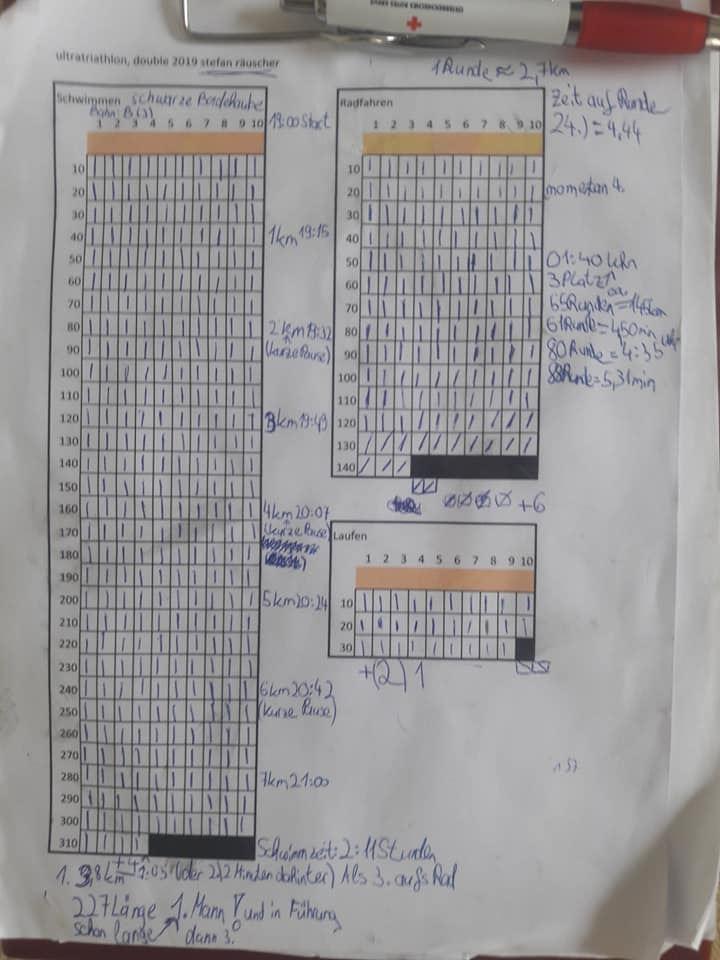 ultratriathlon, double 2019 stefan räuscher
1 Runde ≈ 2,7km
Schwimmen schwarze Badehaube
Bahn: B (3)
1 2 3 4 5 6 7 8 9 10
19:00 Start
10
20
30
40
1km 19:15
50
60
70
80
2km 19:32
90
(kurze Pause)
100
110
120
3km 19:49
130
140
150
160
4km 20:07
170
(kurze Pause)
180
190
200
5km 20:24
210
220
230
240
6km 20:42
250
(kurze Pause)
260
270
280
7km 21:00
290
300
310
Schwimmzeit: 2:11 Stunden
Radfahren
1 2 3 4 5 6 7 8 9 10
Zeit auf Runde
24.) = 4,44
10
20
momentan 4.
30
40
50
01:40 Uhr
60
3 Platz
70
65 Runden = 145km
80
61 Runde = 450min
90
80 Runde = 4:35 Uhr
100
88 Runde = 5,31min
110
120
130
140
+6
Laufen
1 2 3 4 5 6 7 8 9 10
10
20
30
+(2) 1
157
1. 3,8km 1:05 (oder 2 Minuten dahinter) Als 3. aufs Rad
227 Länge 1. Mann und in Führung
schon lange dann 3.